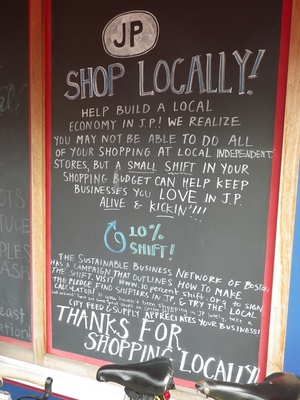 JP
SHOP LOCALLY!
HELP BUILD A LOCAL
ECONOMY IN J.P.! WE REALIZE
YOU MAY NOT BE ABLE TO DO ALL
OF YOUR SHOPPING AT LOCAL INDEPENDENT
STORES, BUT A SMALL SHIFT IN YOUR
SHOPPING BUDGET CAN HELP KEEP
BUSINESSES YOU LOVE IN J.P.
ALIVE & KICKIN'!!!
10%
SHIFT!
THE SUSTAINABLE BUSINESS NETWORK OF BOSTON
HAS A CAMPAIGN THAT OUTLINES HOW TO MAKE
THE SHIFT. VISIT WWW.10percentshift.org TO SIGN
THE PLEDGE, FIND SHIFTERS IN JP, & TRY THE LOCAL
CALC-LATER!
CITY FEED & SUPPLY APPRECIATES YOUR BUSINESS!
THANKS FOR
SHOPPING LOCALLY!